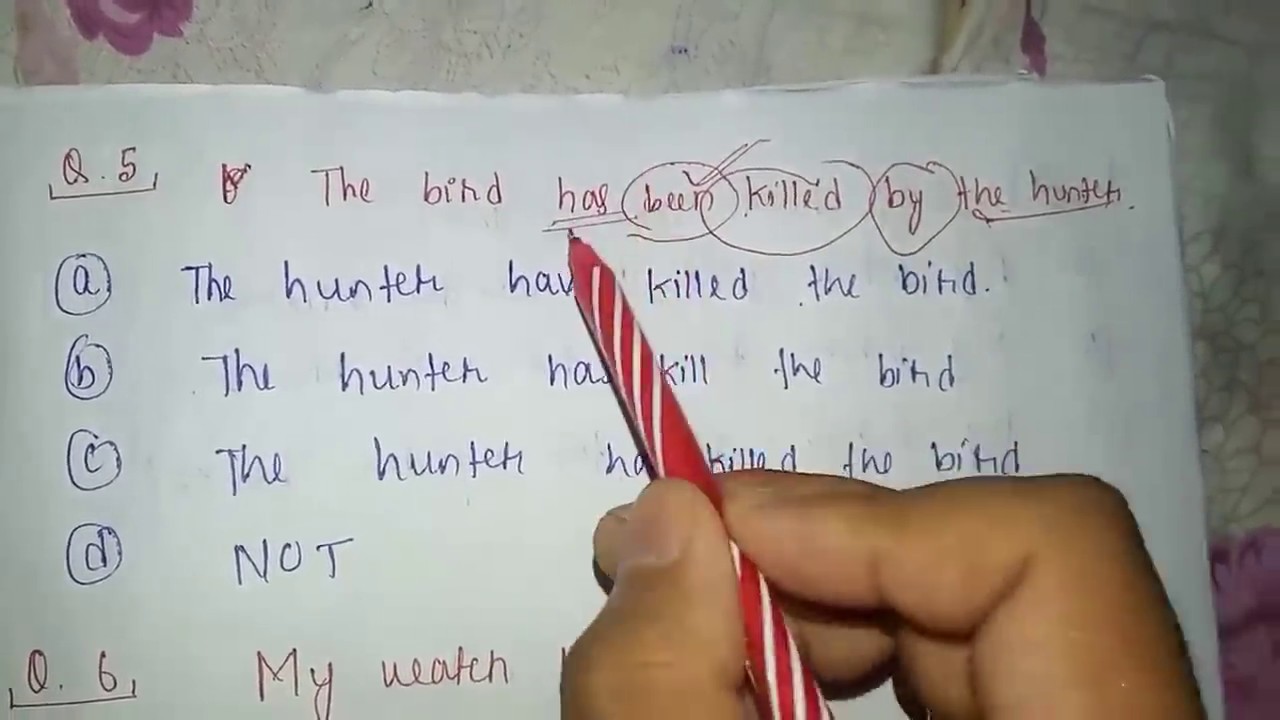 Q. 5 The bird has been killed by the hunter.
(a) The hunter hav killed the bird.
(b) The hunter has kill the bird
(c) The hunter ha killed the bird
(d) NOT
Q. 6 My watch